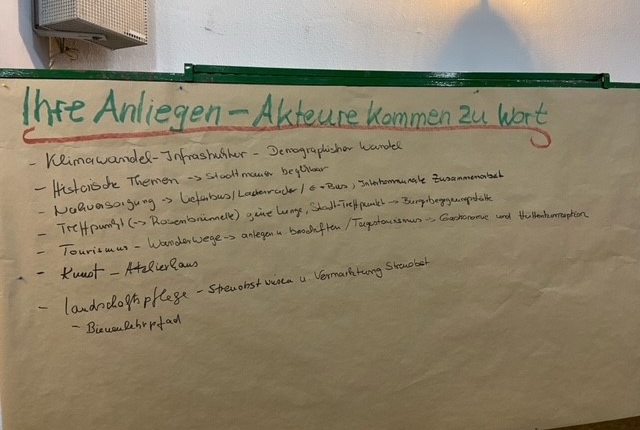 Ihre Anliegen - Akteure kommen zu Wort
- Klimawandel-Infrastruktur - Demographischer Wandel
- Historische Themen → Stadtmauer begehbar
- Nahversorgung → Lieferbus/Lastenräder / E-Bus, Interkommunale Zusammenarbeit
- Treffpunkt (→ Rosenbrünnelle) grüne Lunge, Stadt-Treffpunkt → Bürgerbegegnungsstätte
- Tourismus - Wanderwege → anlegen u. beschriften / Tagestourismus → Gastronomie und Hüttenkonzeption
- Kunst - Atelierhaus
- Landschaftspflege - Streuobstwiesen u. Vermarktung Streuobst
- Bienenlehrpfad